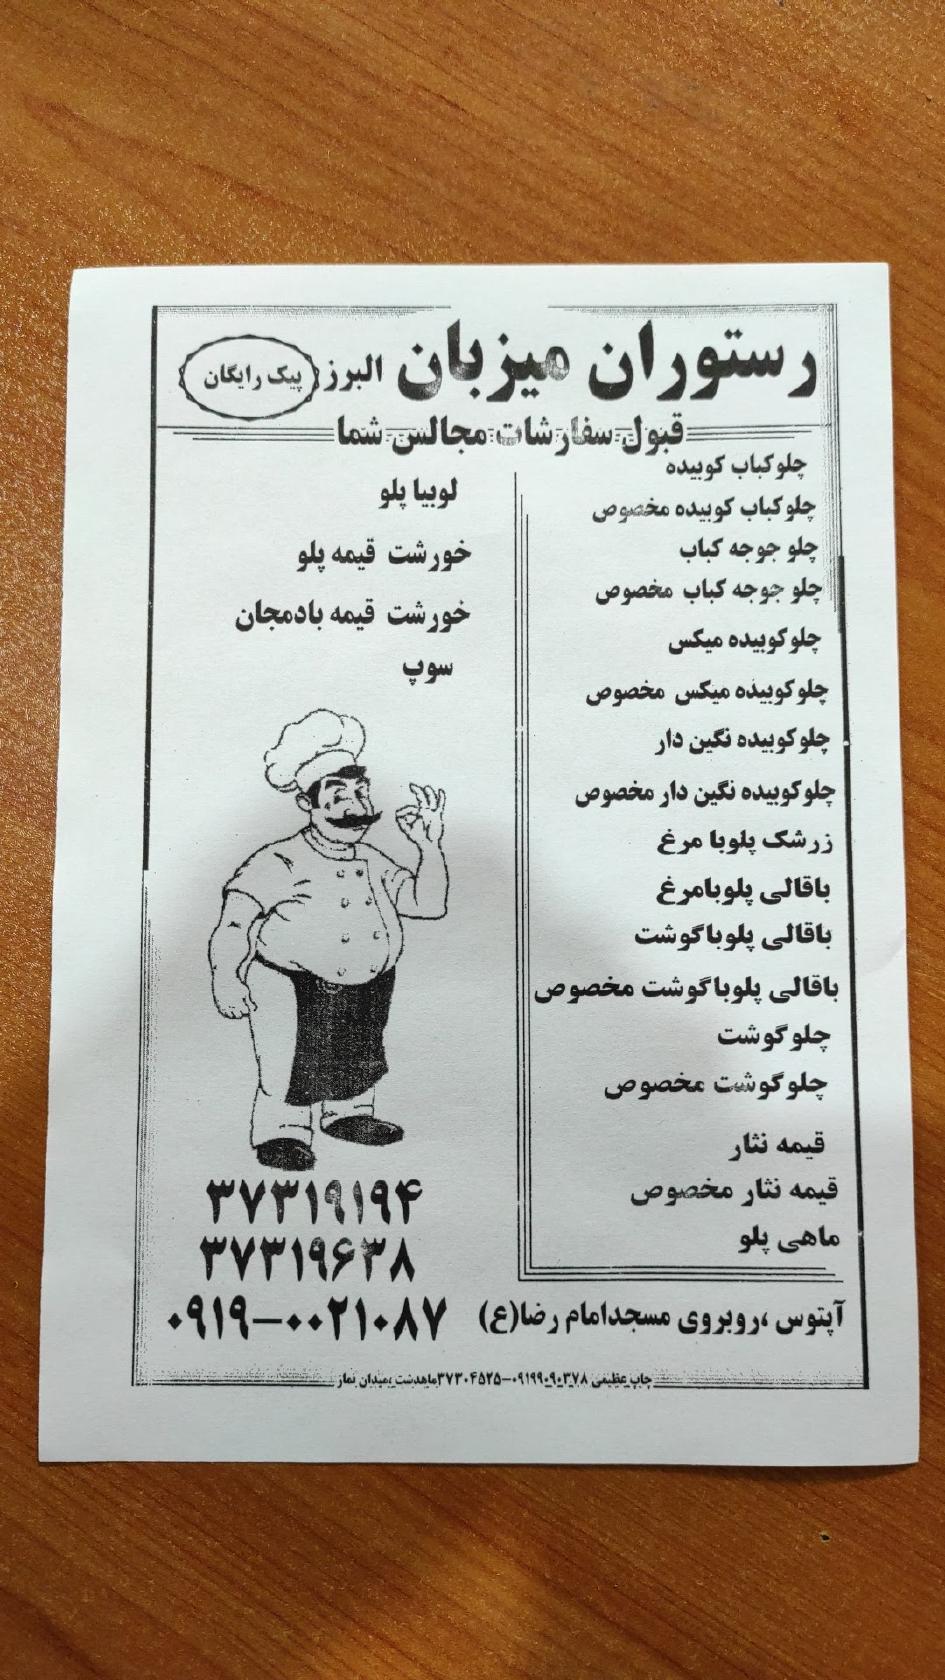 رستوران میزبان البرز
پیک رایگان
قبول سفارشات مجالس شما
چلوکباب کوبیده
چلوکباب کوبیده مخصوص
چلو جوجه کباب
چلو جوجه کباب مخصوص
چلوکوبیده میکس
چلوکوبیده میکس مخصوص
چلوکوبیده نگین دار
چلوکوبیده نگین دار مخصوص
زرشک پلوبا مرغ
باقالی پلوبامرغ
باقالی پلوباگوشت
باقالی پلوباگوشت مخصوص
چلوگوشت
چلوگوشت مخصوص
قیمه نثار
قیمه نثار مخصوص
ماهی پلو
لوبیا پلو
خورشت قیمه پلو
خورشت قیمه بادمجان
سوپ
۳۷۳۱۹۱۹۴
۳۷۳۱۹۶۳۸
آپتوس ،روبروی مسجدامام رضا(ع) ۰۹۱۹-۰۰۲۱۰۸۷
چاپ عظیمی ۰۹۱۹۹۰۹۰۳۷۸-۳۷۳۰۴۵۲۵ماهدشت ،میدان نماز